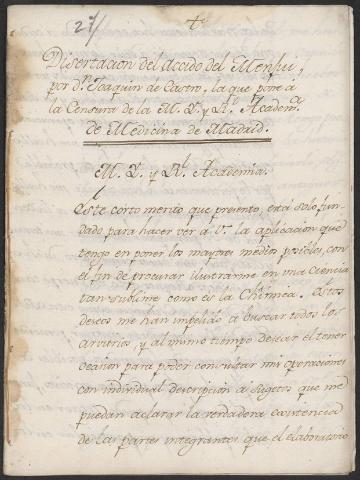 Disertacion del accido del Menjui,
por Dn. Joaquin de Castro, la que pone a
la Censura de la M. Y. y Rl. Academa.
de Medicina de Madrid.
M. Y. y Rl. Academia.
Este corto merito que presento, está solo fun-
dado para hacer ver á V. la aplicacion que
tengo en poner los mayores medios posibles, con
el fin de procurar ilustrarme en una ciencia
tan sublime como es la Chîmica. Estos
deseos me han impelido a buscar todos los
arvitrios, y al mismo tiempo desear el tener
ocasion para poder consultar mis operaciones
con individual descripcion a sugetos que me
puedan aclarar la verdadera existencia
de las partes integrantes que el elaboratorio